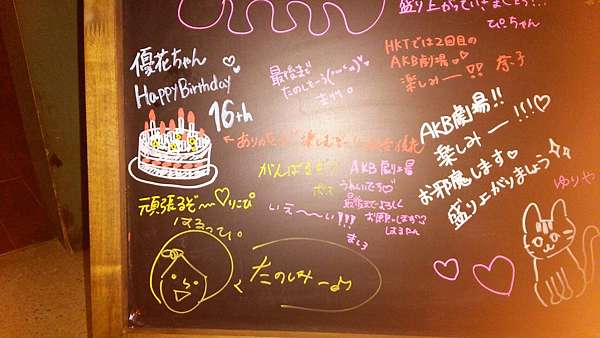 盛り上がっていきましょう!!
ぴちゃん
優花ちゃん♡
HappyBirthday
16th
最後まで
たのしもーう
HKTでは2回目の
AKB劇場♡
楽しみー!! 奈子
AKB劇場!!
楽しみー!!!♡
お邪魔します♡
盛り上がりましょう
ゆりや
←ありがとう 楽しむ
がんばるぞ
AKB劇場
うれいです♡
最後までよろしく
お願いします♡
はるたん
いぇ〜い!!!
ましろ
頑張るぞ〜♡りこぴ
はるってぃ。
たのしみーよっ